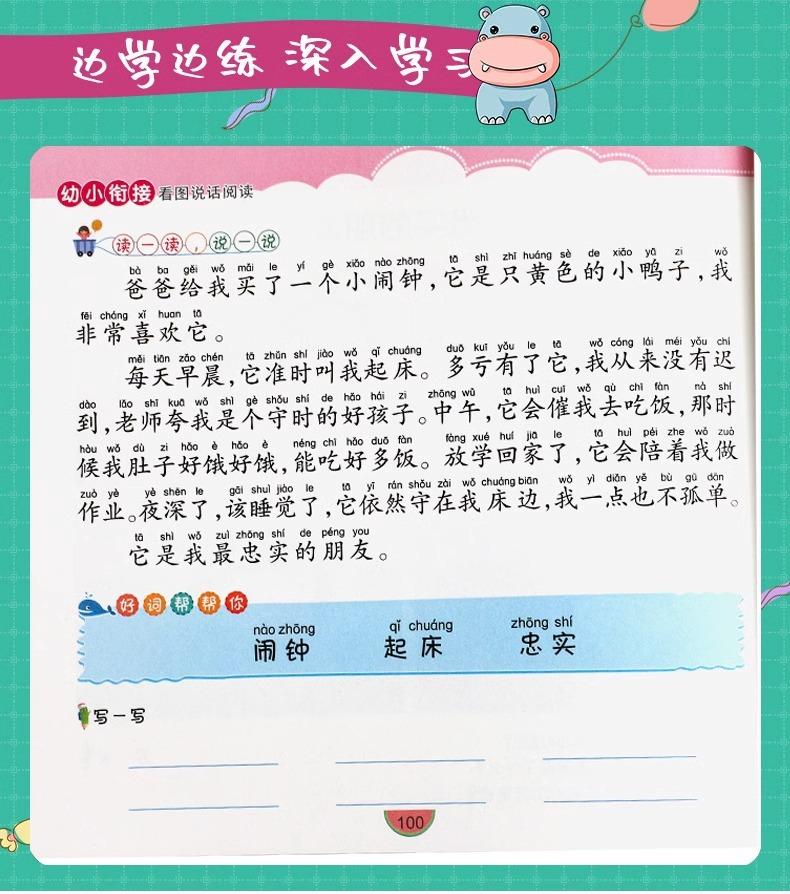 边学边练 深入学习
幼小衔接 看图说话阅读
读一读，说一说
bà ba gěi wǒ mǎi le yí gè xiǎo nào zhōng tā shì zhī huáng sè de xiǎo yā zi wǒ
爸爸给我买了一个小闹钟，它是只黄色的小鸭子，我
fēi cháng xǐ huan tā
非常喜欢它。
měi tiān zǎo chén tā zhǔn shí jiào wǒ qǐ chuáng duō kuī yǒu le tā wǒ cóng lái méi yǒu chí
每天早晨，它准时叫我起床。多亏有了它，我从来没有迟
dào lǎo shī kuā wǒ shì gè shǒu shí de hǎo hái zi zhōng wǔ tā huì cuī wǒ qù chī fàn nà shí
到，老师夸我是个守时的好孩子。中午，它会催我去吃饭，那时
hòu wǒ dù zi hǎo è hǎo è néng chī hǎo duō fàn fàng xué huí jiā le tā huì péi zhe wǒ zuò
候我肚子好饿好饿，能吃好多饭。放学回家了，它会陪着我做
zuò yè yè shēn le gāi shuì jiào le tā yī rán shǒu zài wǒ chuáng biān wǒ yì diǎn yě bù gū dān
作业。夜深了，该睡觉了，它依然守在我床边，我一点也不孤单。
tā shì wǒ zuì zhōng shí de péng you
它是我最忠实的朋友。
好词帮帮你
nào zhōng qǐ chuáng zhōng shí
闹钟 起床 忠实
写一写
100